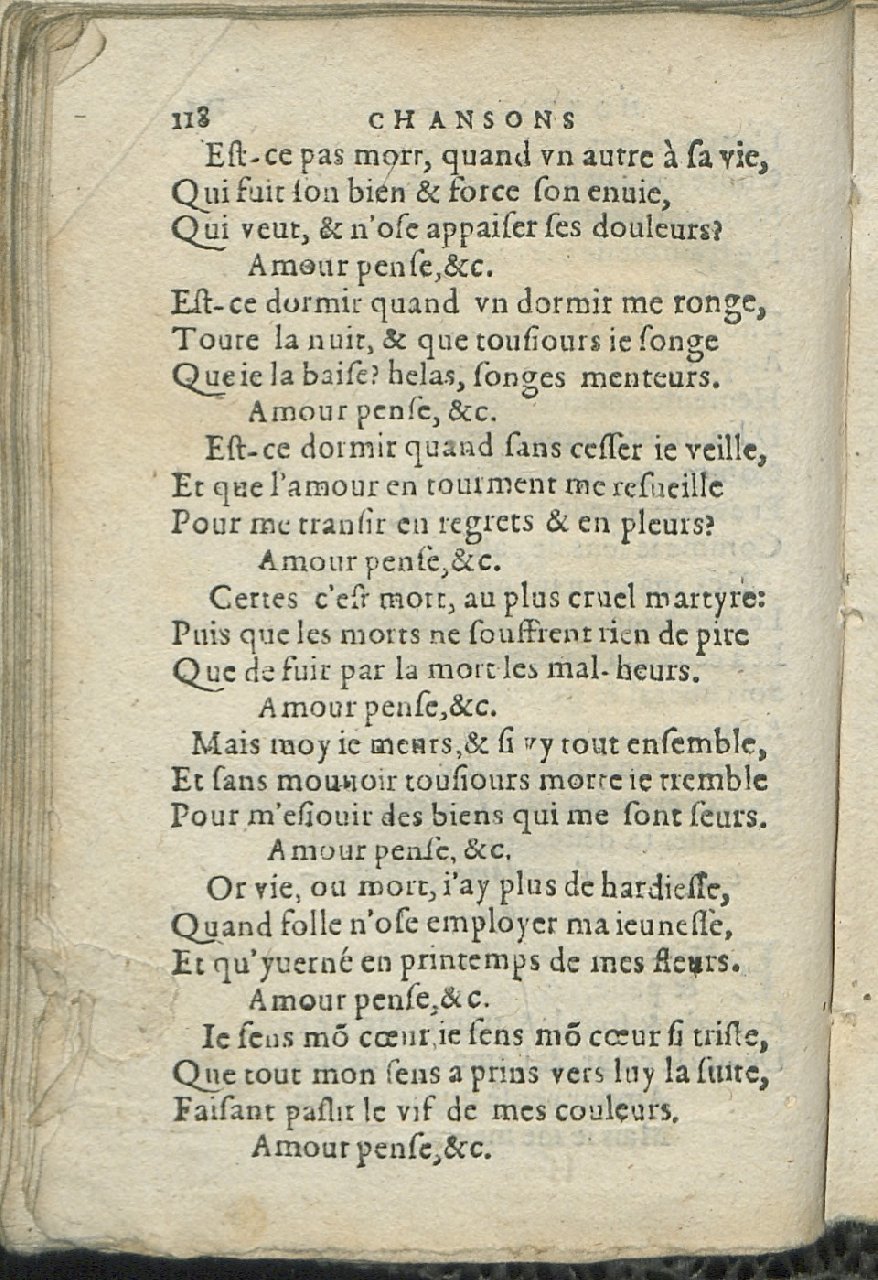 118 CHANSONS
Eſt-ce pas mort, quand vn autre à ſa vie,
Qui fuit ſon bien & force ſon enuie,
Qui veut, & n'oſe appaiſer ſes douleurs?
Amour penſe,&c.
Eſt-ce dormir quand vn dormir me ronge,
Toute la nuit, & que touſiours ie ſonge
Que ie la baiſe? helas, ſonges menteurs.
Amour penſe, &c.
Eſt-ce dormir quand ſans ceſſer ie veille,
Et que l'amour en tourment me reſueille
Pour me tranſir en regrets & en pleurs?
Amour penſe,&c.
Certes c'eſt mort, au plus cruel martyre:
Puis que les morts ne ſouffrent rien de pire
Que de fuir par la mort les mal-heurs.
Amour penſe,&c.
Mais moy ie meurs,& ſi vy tout enſemble,
Et ſans mouuoir touſiours morte ie tremble
Pour m'eſiouir des biens qui me ſont ſeurs.
Amour penſe, &c.
Or vie, ou mort, i'ay plus de hardieſſe,
Quand folle n'oſe employer ma ieuneſſe,
Et qu'yuerné en printemps de mes fleurs.
Amour penſe,&c.
Ie ſens mõ cœur,ie ſens mõ cœur ſi triſte,
Que tout mon ſens a prins vers luy la fuite,
Faiſant paſlir le vif de mes couleurs.
Amour penſe,&c.